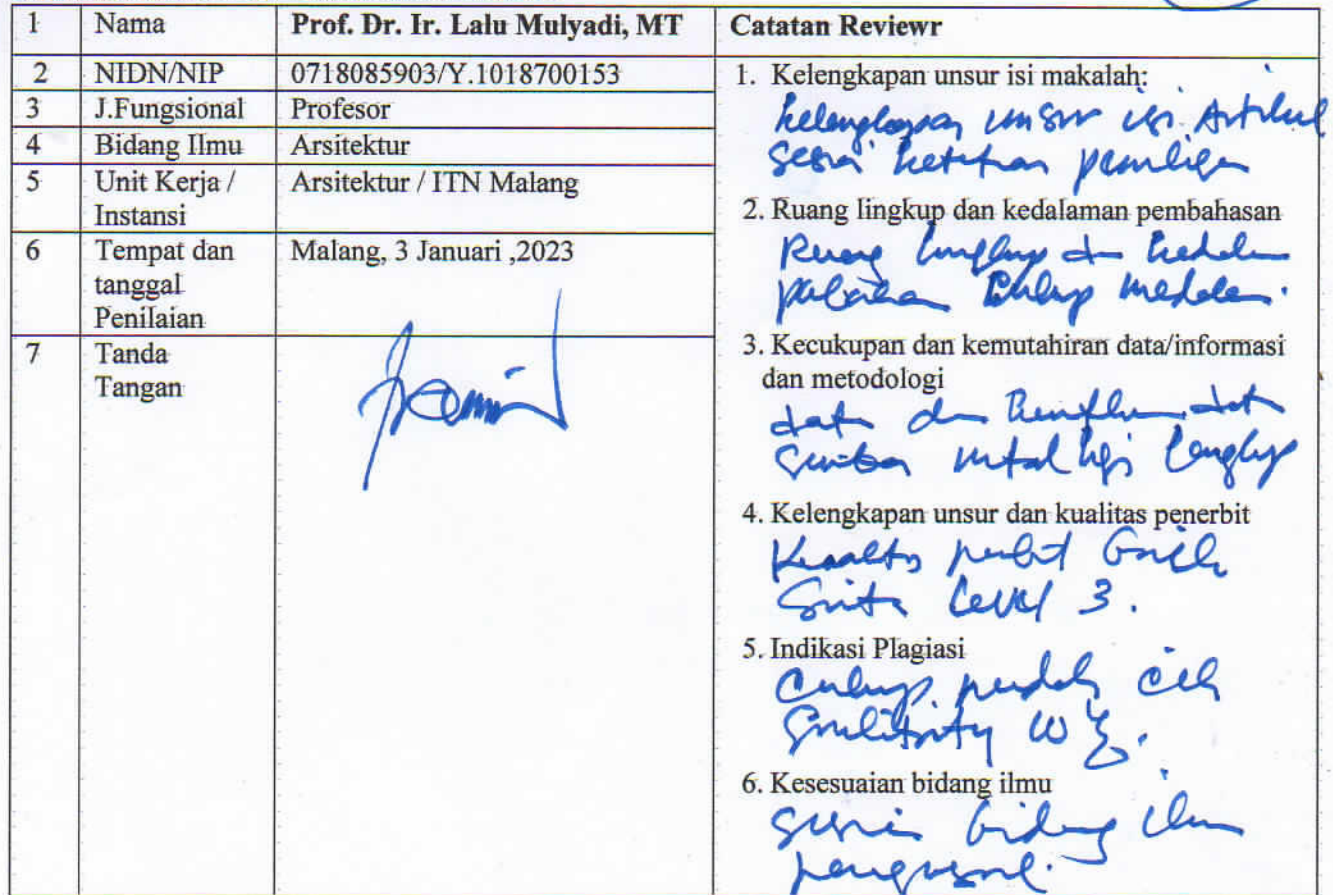 1 Nama Prof. Dr. Ir. Lalu Mulyadi, MT
2 NIDN/NIP 0718085903/Y.1018700153
3 J.Fungsional Profesor
4 Bidang Ilmu Arsitektur
5 Unit Kerja / Arsitektur / ITN Malang
Instansi
6 Tempat dan Malang, 3 Januari ,2023
tanggal
Penilaian
7 Tanda
Tangan
Catatan Reviewr
1. Kelengkapan unsur isi makalah:
kelengkapan unsur isi Artikel
sesuai
2. Ruang lingkup dan kedalaman pembahasan
Ruang lingkup dan kedalaman
cukup
3. Kecukupan dan kemutahiran data/informasi
dan metodologi
data dan data
lengkap
4. Kelengkapan unsur dan kualitas penerbit
Kualitas penerbit
Sinta Level 3.
5. Indikasi Plagiasi
cukup
6. Kesesuaian bidang ilmu
sesuai bidang ilmu
pengusul.